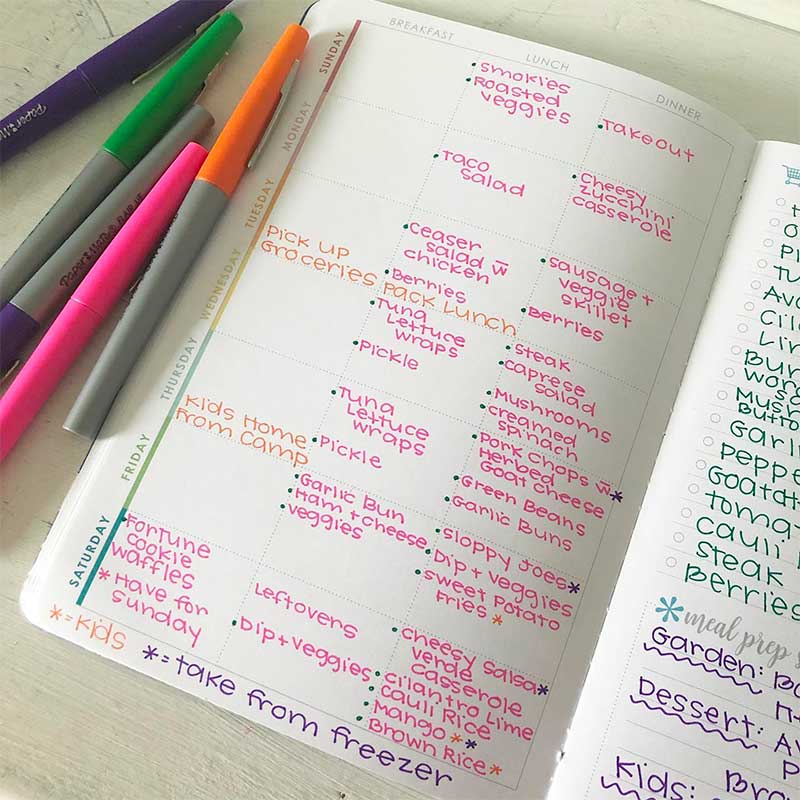 BREAKFAST
LUNCH
DINNER
SUNDAY
smokies
Roasted
veggies
Takeout
MONDAY
Taco
salad
Cheesy
zucchini
casserole
TUESDAY
Pick up
Groceries Pack Lunch
Ceaser
salad w̄
chicken
Berries
sausage +
veggie
skillet
Berries
WEDNESDAY
Tuna
Lettuce
wraps
Pickle
steak
caprese
salad
Mushrooms
creamed
spinach
THURSDAY
Kids Home
from Camp
Tuna
Lettuce
wraps
Pickle
Pork chops w̄ *
Herbed
Goat cheese
Green Beans
Garlic Buns
FRIDAY
Garlic Bun
Ham + cheese
veggies
Sloppy Joes *
Dip + veggies
sweet potato
Fries *
SATURDAY
Fortune
cookie
waffles
* Have for
sunday
Leftovers
Dip + veggies
cheesy salsa *
verde
casserole
cilantro Lime
Cauli Rice
Mango * *
Brown Rice *
* = Kids
* = take from freezer
Paper Mate
Cauli
Steak
Berries
* meal prep
Garden:
Dessert:
Kids: